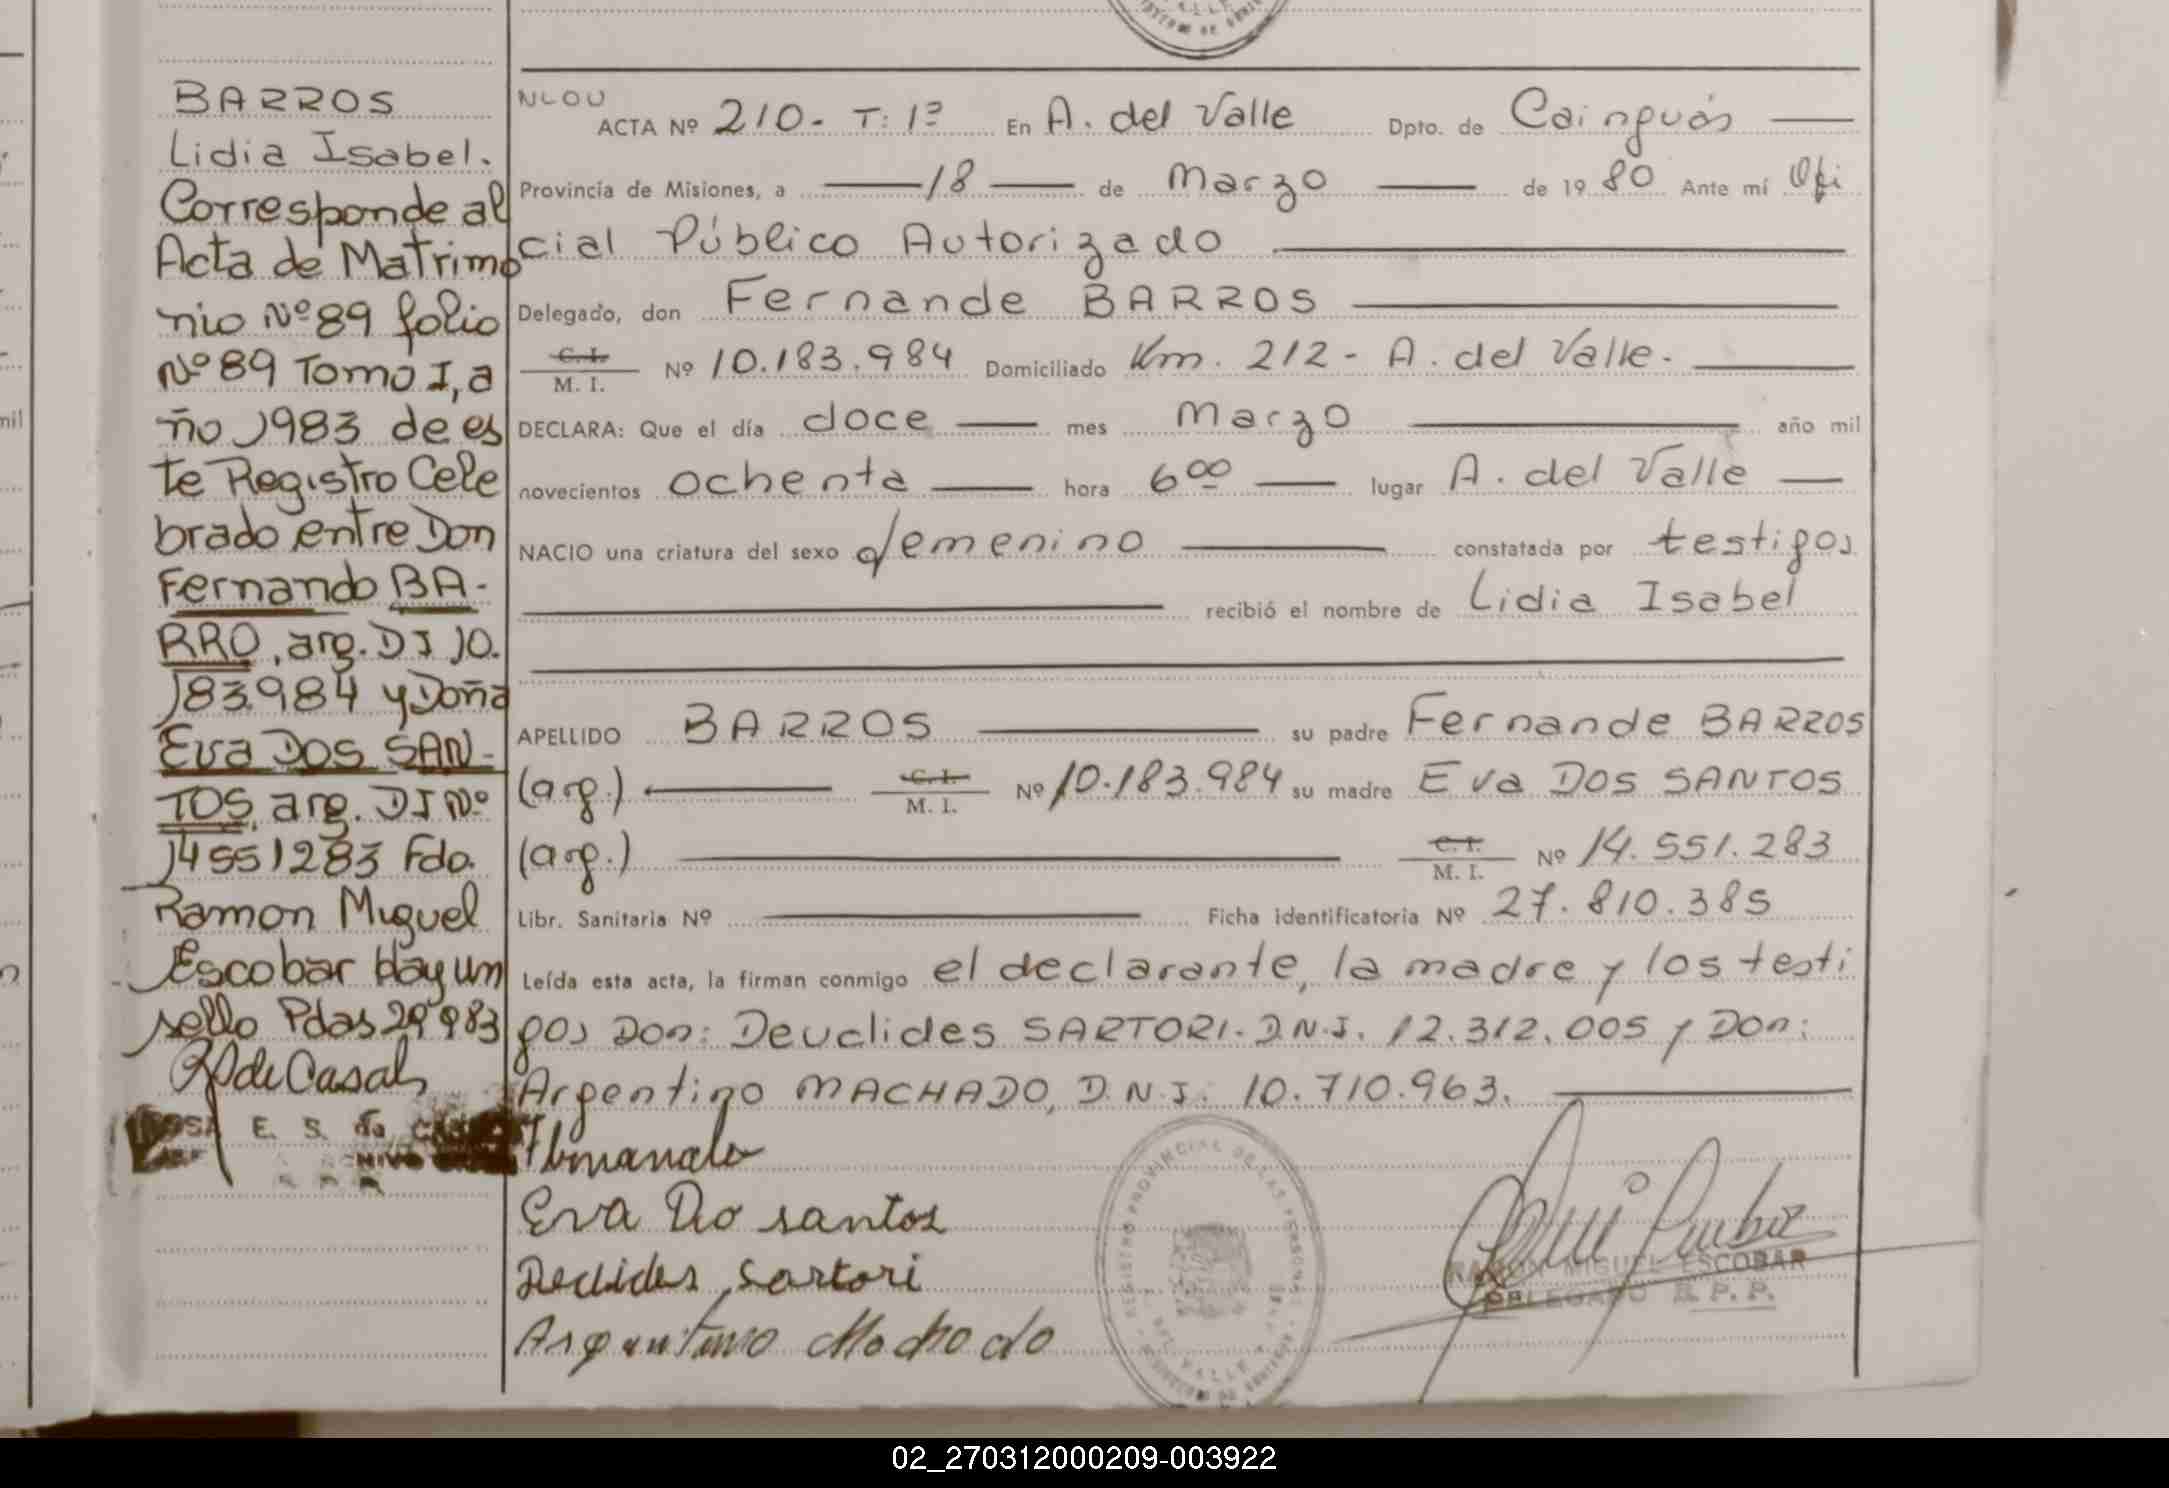 BARROS
Lidia Isabel.
Corresponde al
Acta de Matrimo
nio Nº 89 folio
Nº 89 Tomo I, a
ño 1983 de es
te Registro Cele
brado entre Don
Fernando BA-
RRO, arg. DI 10.
183.984 y Doña
Eva DOS SAN-
TOS, arg. DI Nº
14551283 Fdo.
Ramon Miguel
Escobar Hay un
sello Pdas 29 9 83
de Casals
E. S. de
NLOU
ACTA Nº 210.- T: 1º En A. del Valle Dpto. de Cainguás
Provincia de Misiones, a 18 de Marzo de 19 80 Ante mí Ofi
cial Público Autorizado
Delegado, don Fernande BARROS
C. I.
M. I. Nº 10.183.984 Domiciliado Km. 212 - A. del Valle.
DECLARA: Que el día doce mes Marzo año mil
novecientos ochenta hora 6 00 lugar A. del Valle
NACIO una criatura del sexo femenino constatada por testigos
recibió el nombre de Lidia Isabel
APELLIDO BARROS su padre Fernande BARROS
(arg.) C. I.
M. I. Nº 10.183.984 su madre Eva DOS SANTOS
(arg.) C. I.
M. I. Nº 14.551.283
Libr. Sanitaria Nº Ficha identificatoria Nº 27.810.385
Leída esta acta, la firman conmigo el declarante, la madre y los testi
gos Don: Deuclides SARTORI. D.N.I. 12.312.005 y Don:
Argentino MACHADO, D.N.I. 10.710.963.
Eva Do santos
Declides Sartori
Machado
REGISTRO PROVINCIAL DE LAS PERSONAS
DEL VALLE
RAMON MIGUEL ESCOBAR
DELEGADO R. P. P.
02_270312000209-003922